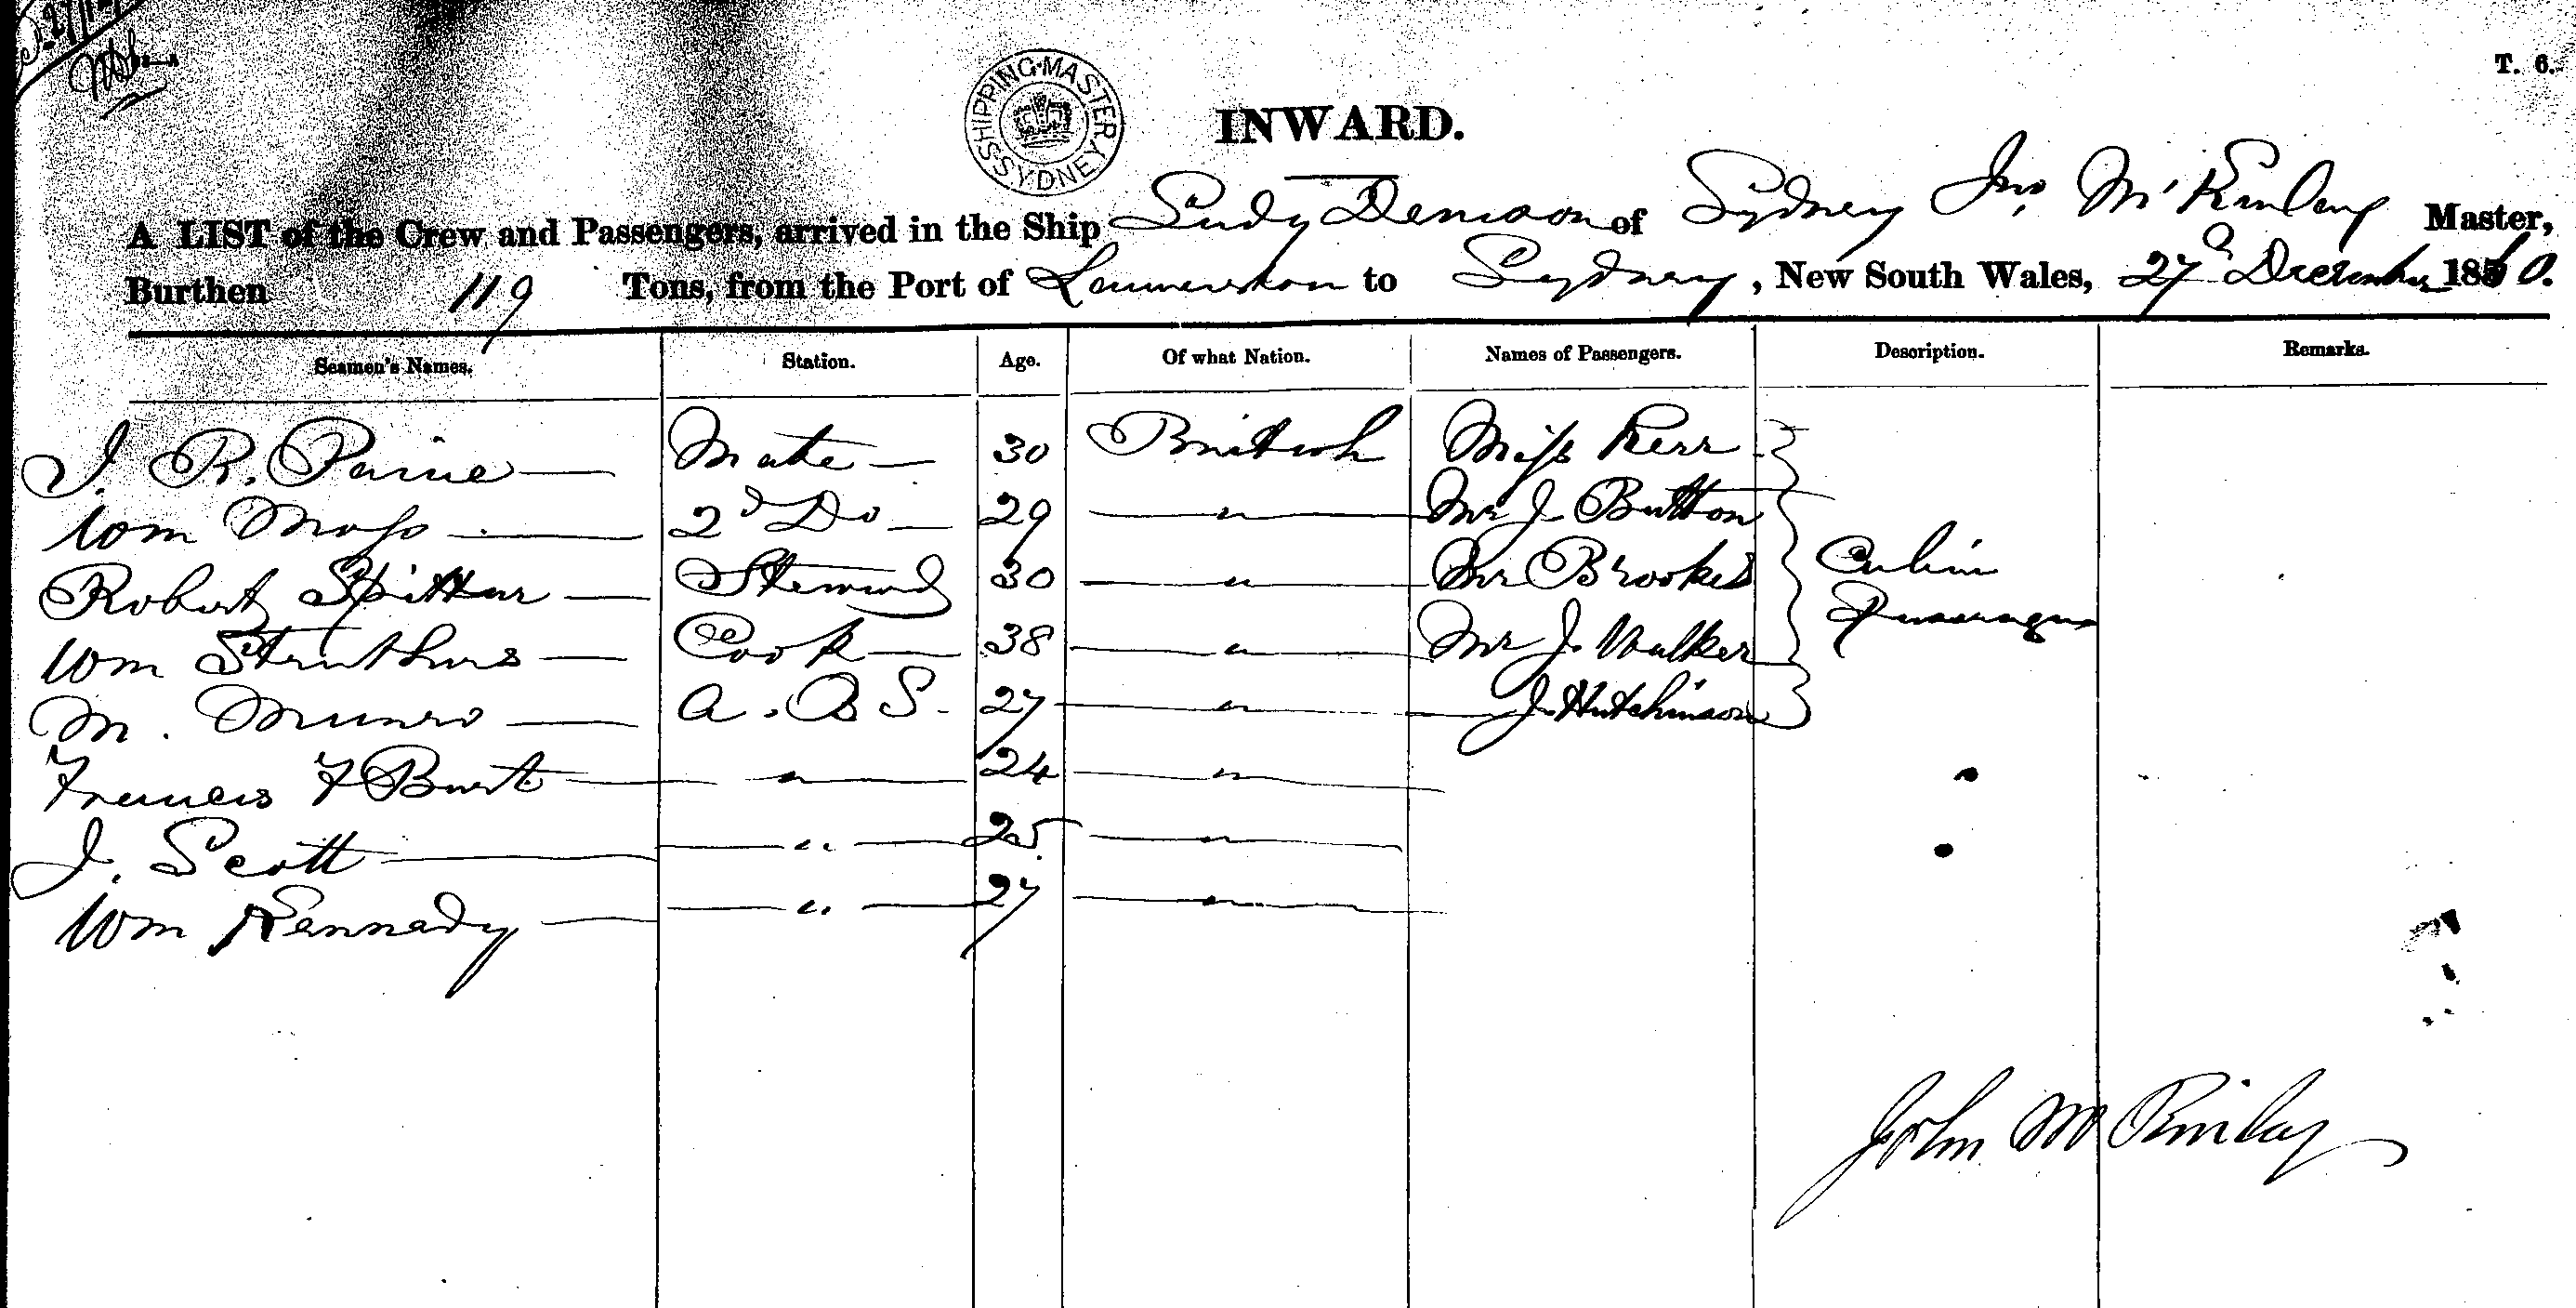 T. 6.
SHIPPING MASTER SYDNEY
INWARD.
A LIST of the Crew and Passengers, arrived in the Ship Lady Denison of Sydney Jno. McKinlay Master,
Burthen 119 Tons, from the Port of Launceston to Sydney, New South Wales, 27th December 1860.
Seamen's Names. Station. Age. Of what Nation. Names of Passengers. Description. Remarks.
J. R. Paine Mate 30 British Miss Kerr
Wm Moss 2d Do 29 " Mr J. Button
Robert 30 Steward " Mr Brookes Cabin
Wm Struthers Cook 38 " Mr J. Walker Passengers
M. Munro A. B S. 27 " J. Hutchinson
Francis F Burt " 24 "
J. Scott " 25 "
Wm Kennedy " 27 "
John McKinlay